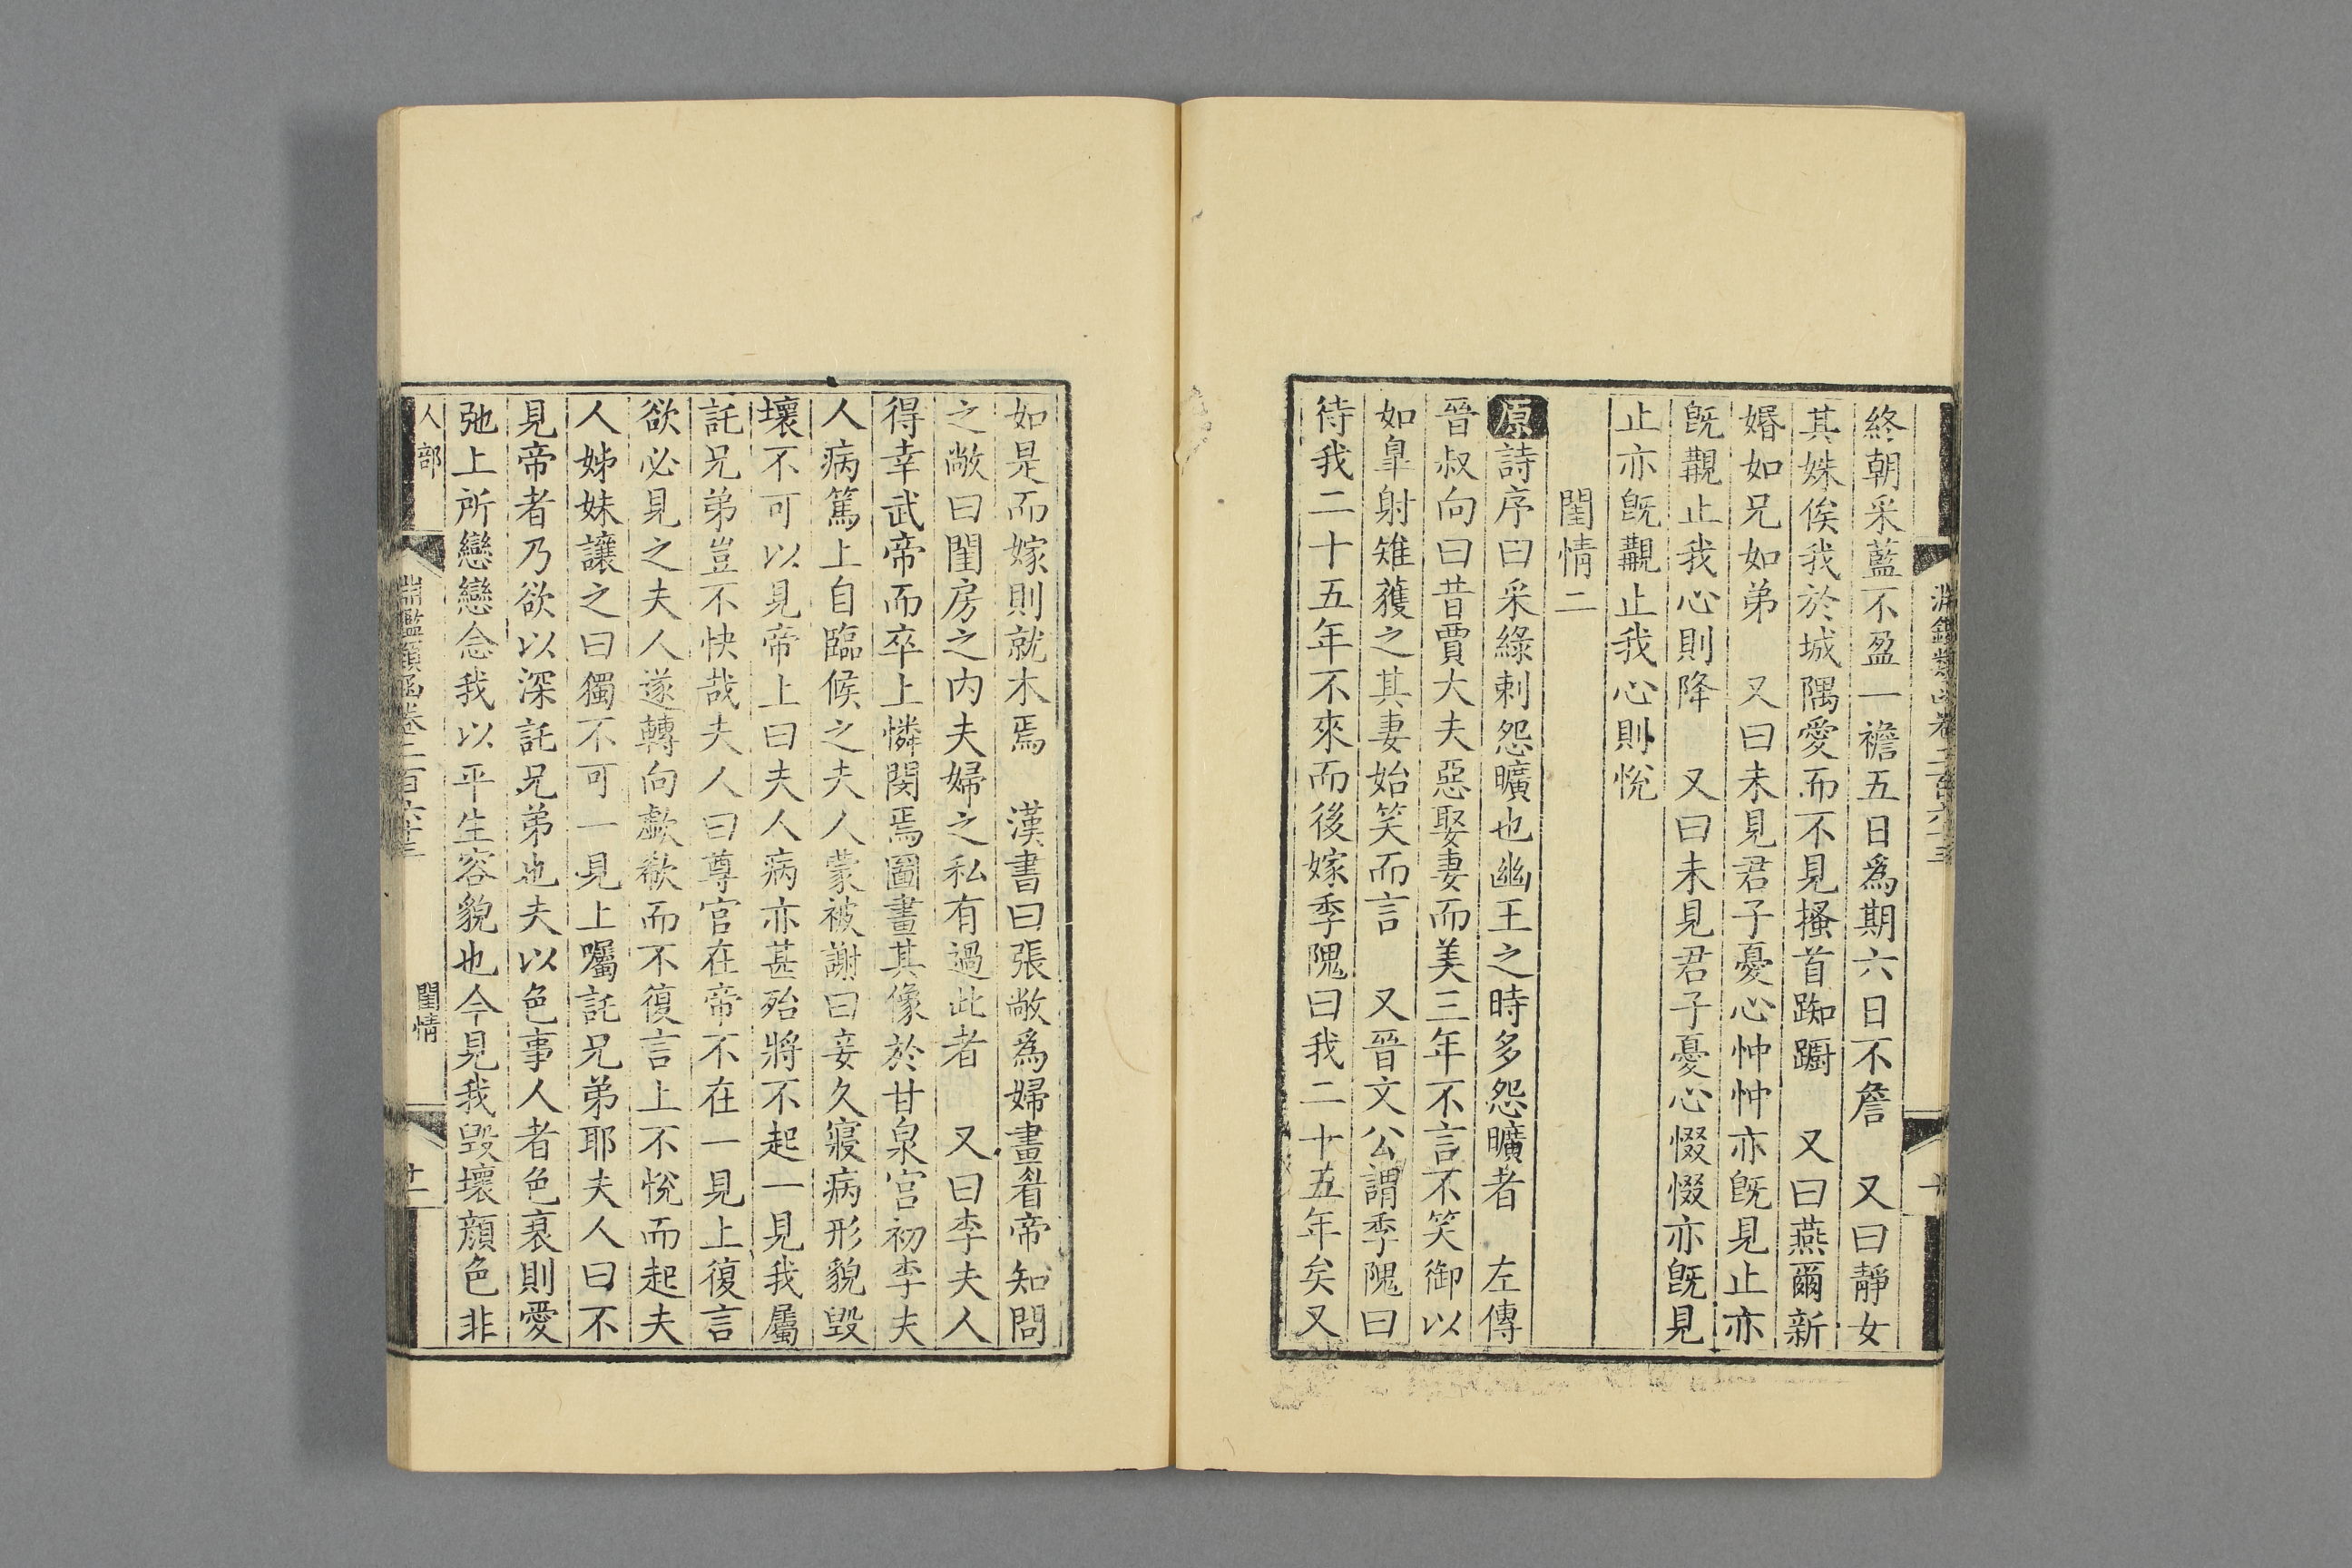 終朝采藍不盈一襜五日爲期六日不詹　又曰靜女
其姝俟我於城隅愛而不見搔首踟躕　又曰燕爾新
婚如兄如弟　又曰未見君子憂心忡忡亦旣見止亦
旣覯止我心則降　又曰未見君子憂心惙惙亦旣見
止亦旣覯止我心則悅
閨情二
原詩序曰采綠刺怨曠也幽王之時多怨曠者　左傳
晉叔向曰昔賈大夫惡娶妻而美三年不言不笑御以
如皐射雉獲之其妻始笑而言　又晉文公謂季隗曰
待我二十五年不來而後嫁季隗曰我二十五年矣又
如是而嫁則就木焉　漢書曰張敞爲婦畫眉帝知問
之敞曰閨房之內夫婦之私有過此者　又曰李夫人
得幸武帝而卒上憐閔焉圖畫其像於甘泉宮初李夫
人病篤上自臨候之夫人蒙被謝曰妾久寢病形貌毀
壞不可以見帝上曰夫人病亦甚殆將不起一見我屬
託兄弟豈不快哉夫人曰尊官在帝不在一見上復言
欲必見之夫人遂轉向歔欷而不復言上不悅而起夫
人姊妹讓之曰獨不可一見上囑託兄弟耶夫人曰不
見帝者乃欲以深託兄弟也夫以色事人者色衰則愛
弛上所戀戀念我以平生容貌也今見我毀壞顏色非
人部
淵鑑類函卷二百六十三
閨情
十一